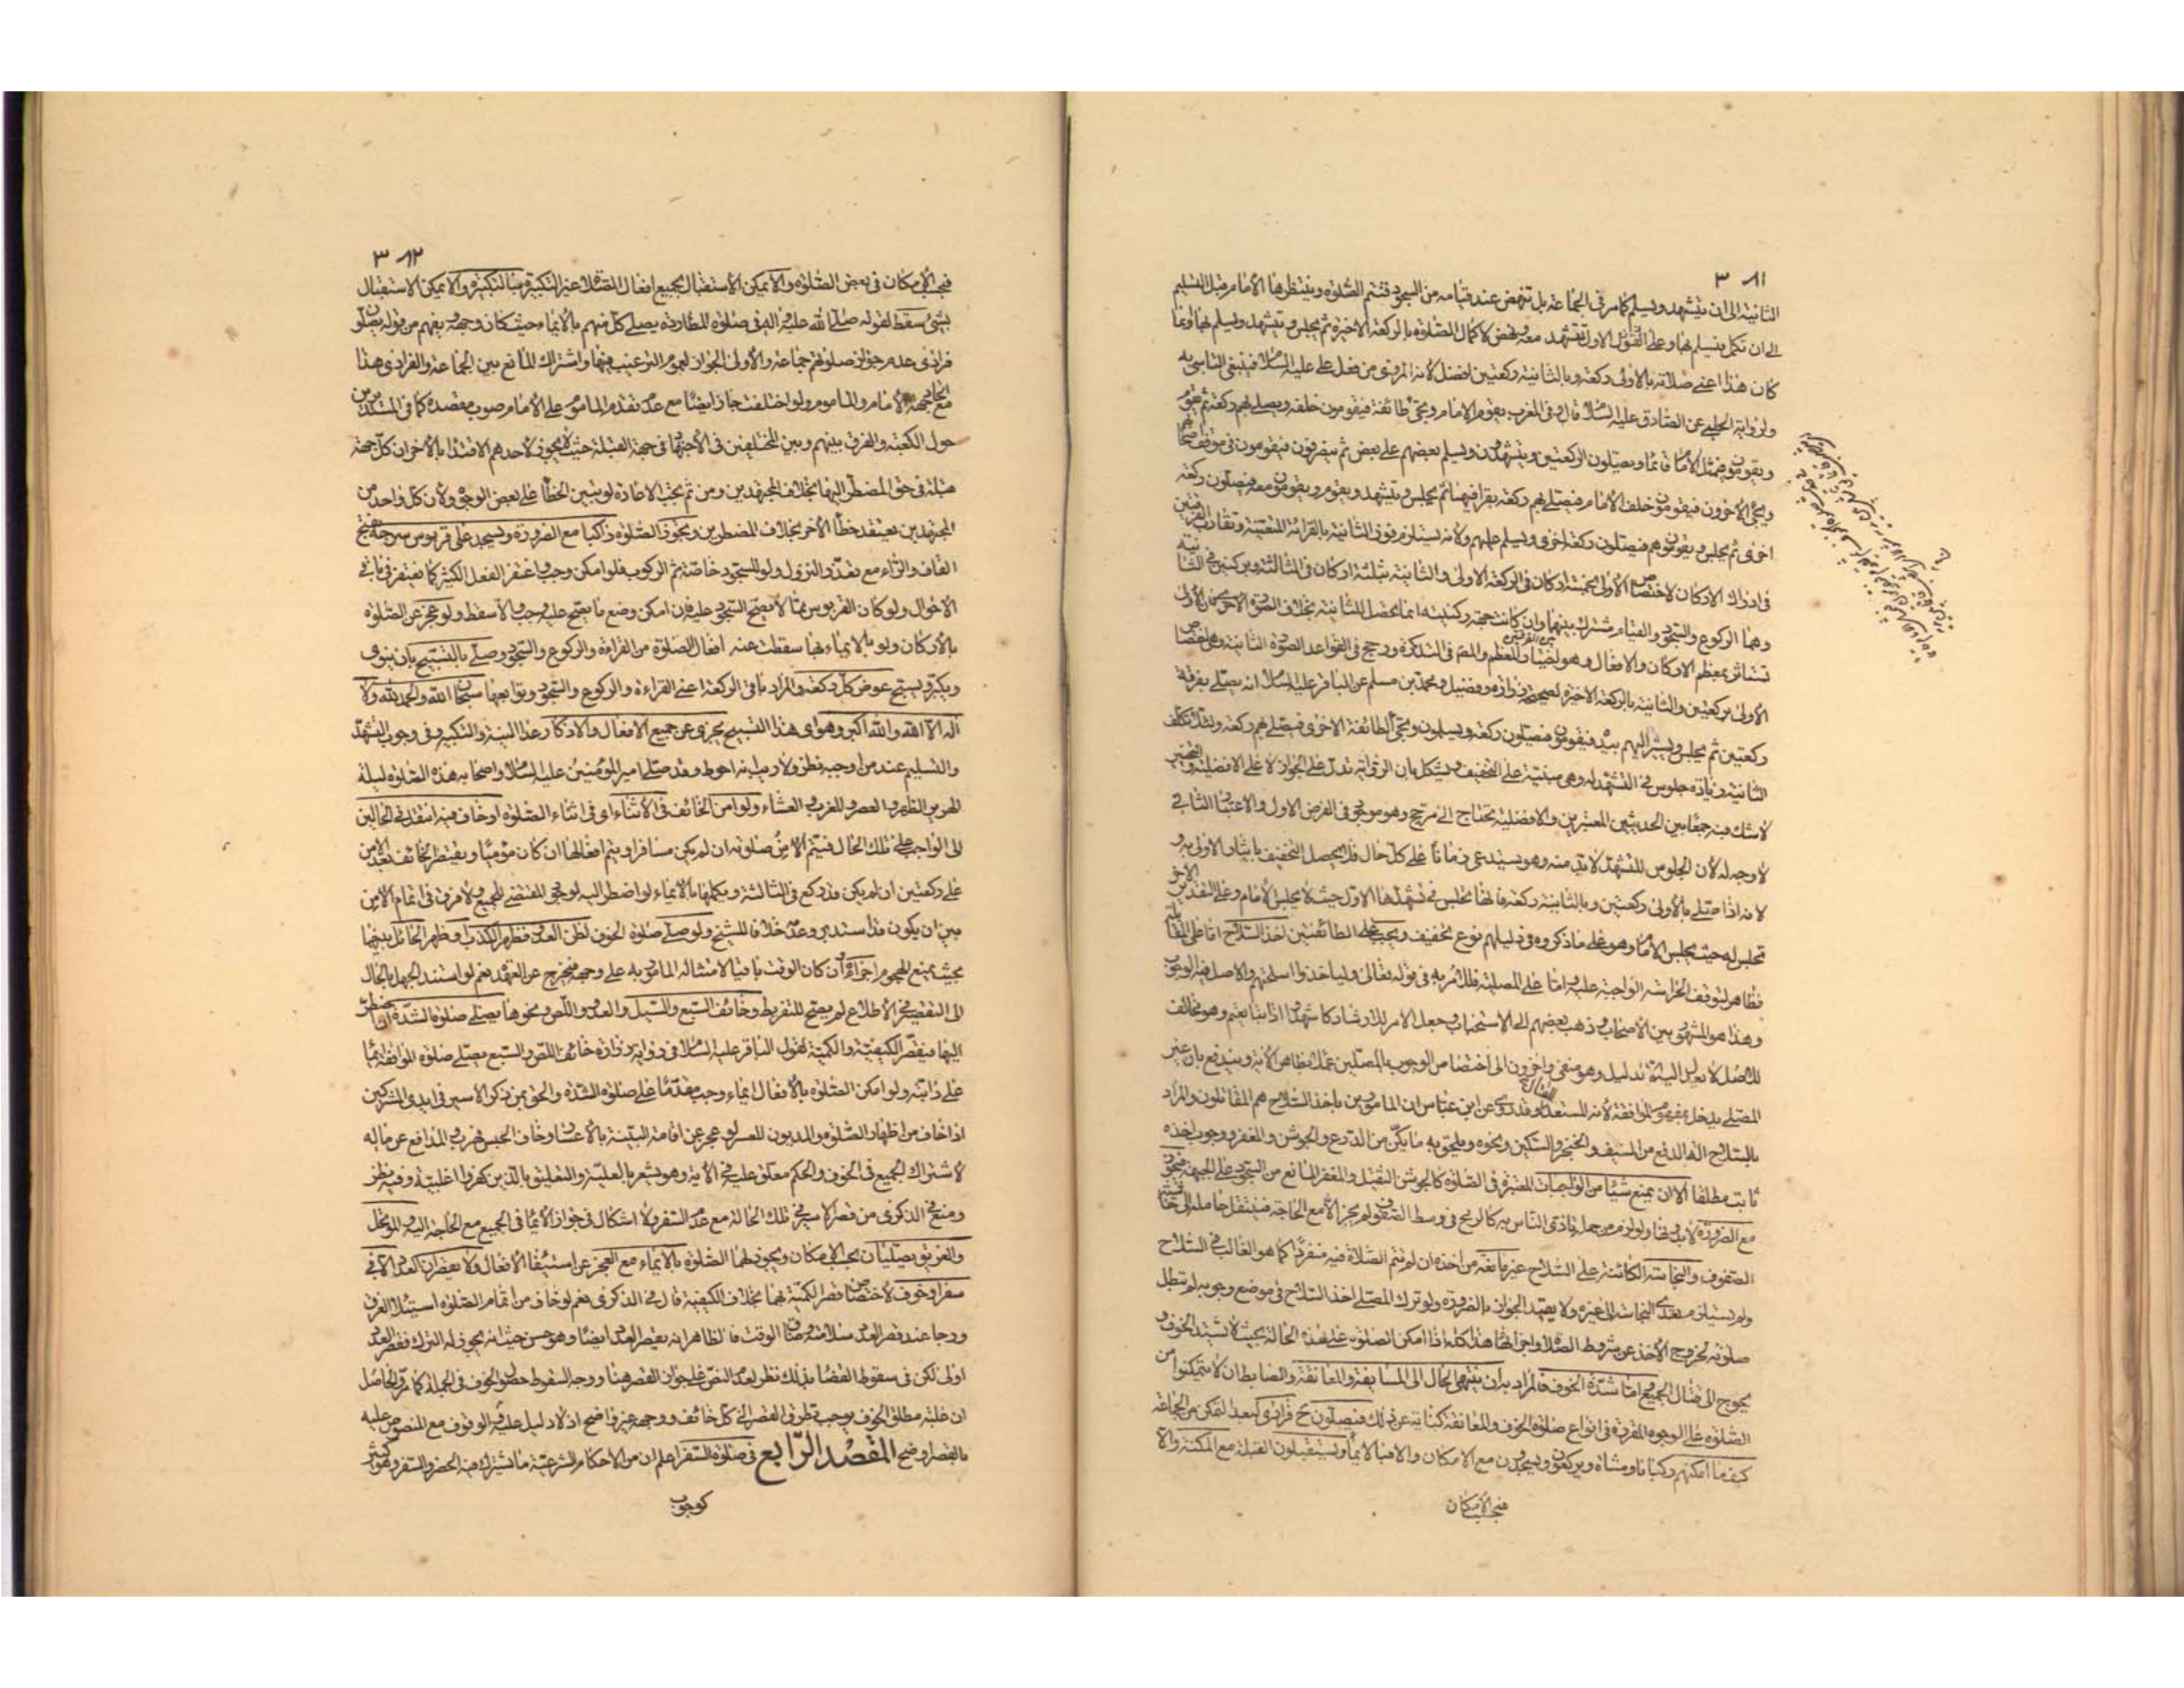 ٣٨١
الثانية الى ان يتشهد ويسلم كما مر في الجماعة بل تنهض عند قيامه من السجود فتتم الصلوة وينتظرها الأمام قبل التسليم
الى ان تكمل فيسلم بها وعلى القول الاول تتشهد معه وتنهض لاكمال الصلوة بالركعة الاخيرة ثم يجلس وتتشهد ويسلم بها وانما
كان هذا اعني صلاته بالأولى ركعة وبالثانية ركعتين افضل لانه المروي من فعل علي عليه السلام فينبغي التاسي به
ولرواية الحلبي عن الصادق عليه السلام قال وفي المغرب يقوم الامام ويجئ طائفة فيقومون خلفه ويصلي بهم ركعة ثم يقوم
ويقومون فيمثل الأمام قائما ويصلون الركعتين ويتشهدون ويسلم بعضهم على بعض ثم ينصرفون فيقومون في موقف اصحابهم
ويجئ الأخرون فيقومون خلف الأمام فيصلي بهم ركعة يقرأ فيها ثم يجلس ويتشهد ويقوم ويقومون معه فيصلون ركعة
اخرى ثم يجلس ويقومون هم فيصلون ركعة اخرى ويسلم عليهم ولأنه يستلزم فوز الثانية بالقرائة المتعينة وتقارب الفرقتين
في ادراك الاركان لاختصاص الأولى بخمسة اركان في الركعة الاولى والثانية بثلثة اركان في الثالثة وبركنين في الثانية
وهما الركوع والسجود والقيام مشترك بينهما وان كانت جهة ركنيته انما تحصل للثانية بخلاف الصورة الاخرى فان الأولى
تستاثر بمعظم الاركان والافعال وهو
الأولى بركعتين والثانية بالركعة الاخيرة لصحيحة زرارة وفضيل ومحمد بن مسلم عن الباقر عليه السلام انه يصلي بفرقة
ركعتين ثم يجلس ويشير اليهم بيده فيقومون فيصلون ركعة ويسلمون ويجئ الطائفة الاخرى فيصلي بهم ركعة ولئلا تكلف
الثانية زيادة جلوس في التشهد له وهي مبنية على التخفيف ويشكل بان الرواية تدل على الجواز لا على الافضلية والتخيير
لا شك فيه جمعا بين الحديثين المعتبرين والافضلية تحتاج الى مرجح وهو موجود في الفرض الاول والاعتبار الثاني
لا وجه له لأن الجلوس للتشهد لا بد منه وهو يستدعي زمانا على كل حال فلا يحصل التخفيف بايثار الاولى به و
لانه اذا صلى بالأولى ركعتين وبالثانية ركعة فانها تجلس في تشهدها الاول حيث لا يجلس الأمام وعلى التقدير الآخر
تجلس له حيث يجلس الأمام وهو على ما ذكروه في دليلهم نوع تخفيف ويجب على الطائفتين اخذ السلاح اما على المقاتلة
فظاهر لتوقف الحراسة الواجبة عليه واما على المصلية فللأمر به في قوله تعالى وليأخذوا اسلحتهم والاصل فيه الوجوب
وهذا هو المشهور بين الأصحاب وذهب بعضهم الى الاستحباب وجعل الامر للارشاد كاشهدوا اذا تبايعتم وهو مخالف
للاصل لا يعدل اليه الا بدليل وهو منفي واخرون الى اختصاص الوجوب بالمصلين عملا بظاهر الآية ويندفع بان غير
المصلي يدخل بمفهوم الموافقة لأنه المستعد للقتال وقد روى عن ابن عباس ان المامورين باخذ السلاح هم المقاتلون والمراد
بالسلاح آلة الدفع من السيف والخنجر والسكين ونحوه ويلحق به ما يكن من الدرع والجوشن والمغفر ووجوب اخذه
ثابت مطلقا الا ان يمنع شيئا من الواجبات المعتبرة في الصلوة كالجوشن الثقيل والمغفر المانع من السجود على الجبهة فيجوز
مع الضرورة لا بدونها ولو لزم من حمله تاذي الناس به كالرمح في وسط الصفوف لم يجز الا مع الحاجة فينتقل حامله الى حاشية
الصفوف والنجاسة الكائنة على السلاح غير مانعة من اخذه ان لم تتم الصلاة فيه منفردا كما هو الغالب في السلاح
ولم يستلزم تعدي النجاسة الى غيره ولا يقيد الجواز بالضرورة ولو ترك المصلي اخذ السلاح في موضع وجوبه لم تبطل
صلوته لخروج الأخذ عن شروط الصلاة واجزائها هذا كله اذا امكن الصلوة على هذه الحالة بحيث لا يشتد الخوف و
يحوج الى قتال الجميع اما شدة الخوف فالمراد به ان ينتهي الحال الى المسايفة والمعانقة والضابط ان لا يتمكنوا من
الصلوة على الوجوه المقررة في انواع صلوة الخوف والمعانقة كناية عن ذلك فيصلون ح فرادى كبعد التمكن من الجماعة
كيف ما امكنهم ركبانا ومشاة ويركعون ويسجدون مع الامكان والا فبالايماء ويستقبلون القبلة مع المكنة والا
فبحسب الأمكان
٣٨٢
فبحسب الأمكان في بعض الصلوة والا يمكن الأستقبال بجميع افعال الصلاة عدا التكبيرة فبالتكبيرة والا يمكن الاستقبال
بشئ سقط لقوله صلى الله عليه واله في صلوة المطاردة يصلي كل منهم بالايماء حيث كان وجهه ويفهم من قوله يصلون
فرادى عدم جواز صلوتهم جماعة والأولى الجواز لعموم الترغيب فيها واشتراك المانع بين الجماعة والفرادى هذا
مع اتحاد جهة الأمام والماموم ولو اختلفت جاز ايضا مع عدم تقدم الماموم على الأمام صوب مقصده كما في المستديرين
حول الكعبة والفرق بينهم وبين المختلفين في الأجتهاد في جهة القبلة حيث لا يجوز لأحدهم الاقتداء بالأخر ان كل جهة
قبلة في حق المضطر اليها بخلاف المجتهدين ومن ثم يجب الاعادة لو تبين الخطأ على بعض الوجوه ولأن كل واحد من
المجتهدين يعتقد خطأ الأخر بخلاف المضطرين ويجوز الصلوة راكبا مع الضرورة ويسجد على قربوس سرجه بفتح
القاف والراء مع تعذر النزول ولو للسجود خاصة ثم الركوب فلو امكن وجب واغتفر الفعل الكثير كما يغتفر في باقي
الأحوال ولو كان القربوس مما لا يصح السجود عليه فان امكن وضع ما يصح عليه وجب والا سقط ولو عجز عن الصلوة
بالأركان ولو بالايماء بها سقطت عنه افعال الصلوة من القراءة والركوع والسجود وصلى بالتسبيح بان ينوي
ويكبر ويسبح عوض كل ركعة والمراد باقي الركعة اعني القراءة والركوع والسجود وتوابعها سبحان الله والحمد لله ولا
اله الا الله والله اكبر وهو اي هذا التسبيح يجزي عن جميع الافعال والاذكار عدا النية والتكبير وفي وجوب التشهد
والتسليم عند من اوجبه نظر ولا ريب انه احوط وقد صلى امير المؤمنين عليه السلام واصحابه هذه الصلوة ليلة
الهرير الظهر والعصر والمغرب والعشاء ولو امن الخائف في الاثناء اي في اثناء الصلوة او خاف فيه انتقل في الحالين
الى الواجب على تلك الحال فيتم الآمن صلوته ان لم يكن مسافرا ويتم افعالها ان كان مومئا ويقتصر الخائف بعد الأمن
على ركعتين ان لم يكن قد ركع في الثالثة ويكملها بالايماء لو اضطر اليه لوجود المقتضي للجميع ولا فرق في اتمام الآمن
بين ان يكون قد استدبر وعدمه خلافا للشيخ ولو صلى صلوة الخوف لظن العدو فظهر الكذب او ظهر الحائل بينهما
بحيث يمنع الهجوم اجزأ وان كان الوقت باقيا لامتثاله المامور به على وجهه فيخرج عن العهدة نعم لو استند الجهل بالحال
الى التقصير في الأطلاع لم يصح للتفريط وخائف السبع والسيل والعدو واللص ونحوها يصلي صلوة الشدة ان اضطر
اليها فيقصر الكيفية والكمية لقول الباقر عليه السلام في رواية زرارة خائف اللص والسبع يصلي صلوة المواقفة ايماء
على دابته ولو امكن الصلوة بالأفعال ايماء وجب مقدما على صلوة الشدة والحق بمن ذكر الاسير في ايدي المشركين
اذا خاف من اظهار الصلوة والمديون المعسر لو عجز عن اقامة البينة بالأعسار وخاف الحبس فهرب والمدافع عن ماله
لاشتراك الجميع في الخوف والحكم معلق عليه في الآية وهو يشعر بالعلية والتعليق بالذين كفروا اغلبية وفيه نظر
ومنع في الذكرى من قصر الاسير في تلك الحالة مع عدم السفر ولا اشكال في جواز الأيماء في الجميع مع الحاجة اليه والموتحل
والغريق يصليان بحسب الامكان ويجوز لهما الصلوة بالايماء مع العجز عن استيفاء الأفعال ولا يقصران العدد الا في
سفر او خوف لاختصاص قصر الكمية بهما بخلاف الكيفية قال في الذكرى نعم لو خاف من اتمام الصلوة استيلاء الغرق
ورجا عند قصر العدد سلامته وضاق الوقت فالظاهر انه يقصر العدد ايضا وهو حسن حيث انه يجوز له الترك فقصر العدد
اولى لكن في سقوط القضاء بذلك نظر لعدم النص على جواز القصر هنا ووجه السقوط حصول الخوف في الجملة كما مر والحاصل
ان علية مطلق الخوف يوجب تطرق القصر الى كل خائف ووجهه غير واضح اذ لا دليل عليه والوقوف مع المنصوص عليه
بالقصر اوضح المقصد الرابع في صلوة السفر اعلم ان من الاحكام الشرعية ما تشترك فيه الحضر والسفر وهو كثير
كوجوب